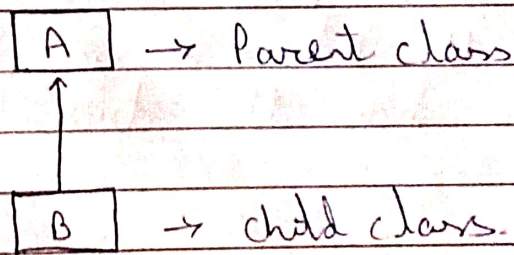 A → Parent class
B → child class.